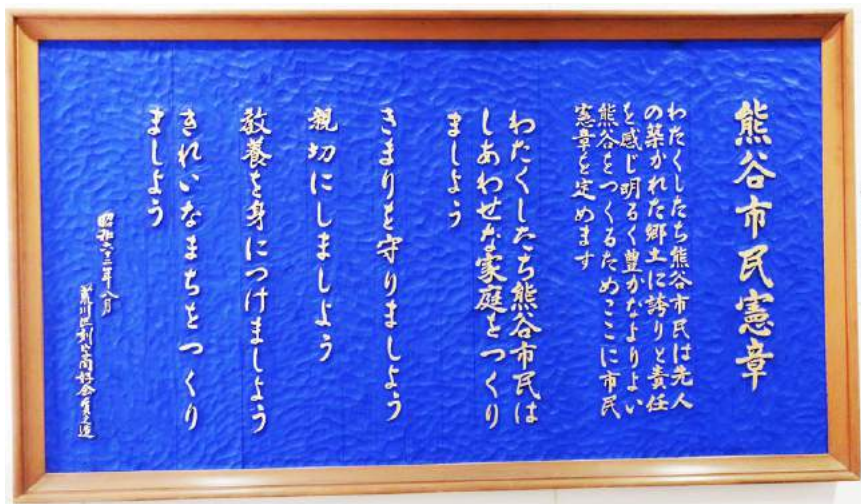 熊谷市民憲章
わたくしたち熊谷市民は先人
の築かれた郷土に誇りと責任
を感じ明るく豊かなよりよい
熊谷をつくるためここに市民
憲章を定めます
わたくしたち熊谷市民は
しあわせな家庭をつくり
ましよう
きまりを守りましよう
親切にしましよう
教養を身につけましよう
きれいなまちをつくり
ましよう
昭和六十二年八月
荒川区彫刻同好会